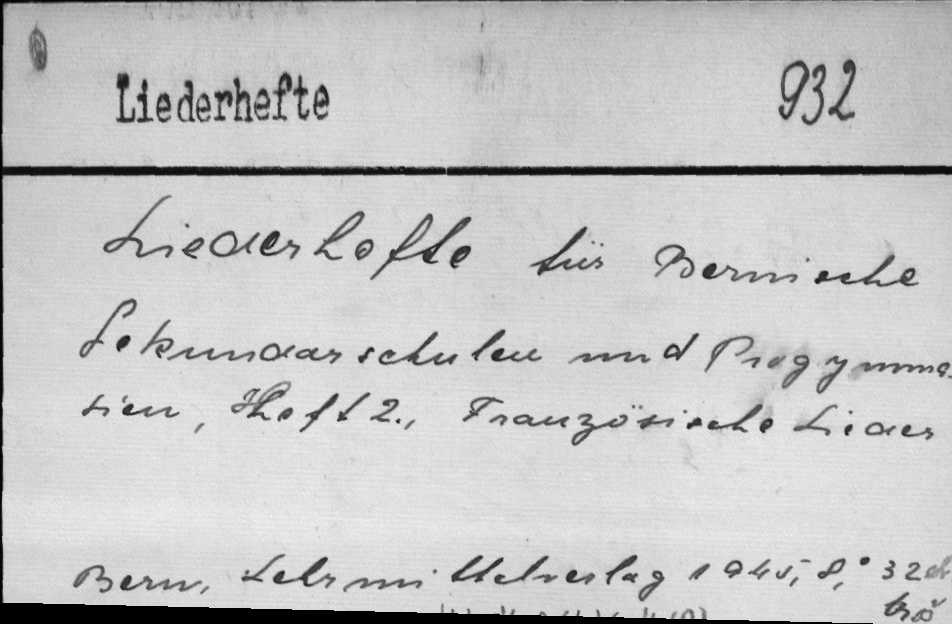 Liederhefte 932
Liederhefte für Bernische
Sekundarschulen und Progymna-
sien, Heft 2., Französische Lieder
Bern, Lehrmittelverlag 1945, 8,° 32